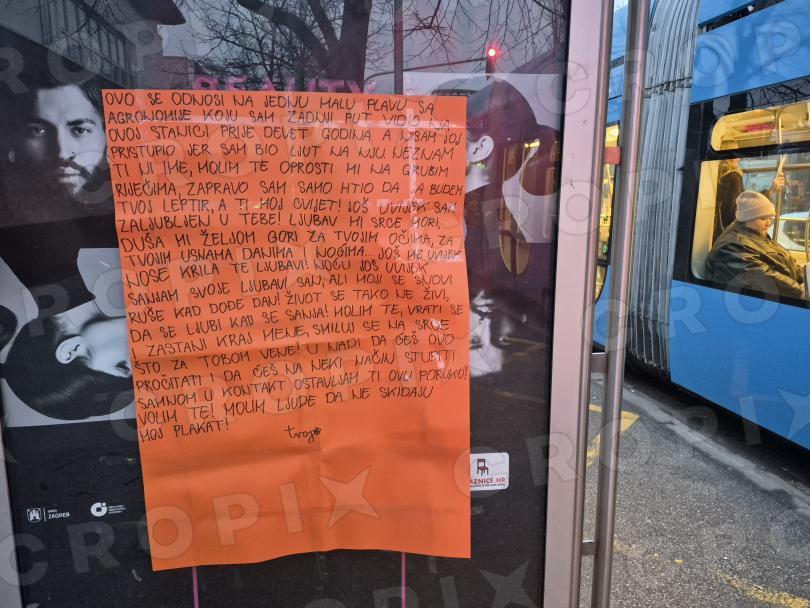 OVO SE ODNOSI NA JEDNU MALU PLAVU SA
AGRONOMIJE KOJU SAM ZADNJI PUT VIDIO NA
OVOJ STANICI PRIJE DEVET GODINA A NISAM JOJ
PRISTUPIO JER SAM BIO LJUT NA NJU. NEZNAM
TI NI IME, MOLIM TE OPROSTI MI NA GRUBIM
RIJEČIMA, ZAPRAVO SAM SAMO HTIO DA JA BUDEM
TVOJ LEPTIR, A TI MOJ CVIJET! JOŠ UVIJEK SAM
ZALJUBLJEN U TEBE! LJUBAV MI SRCE MORI,
DUŠA MI ŽELJOM GORI ZA TVOJIM OČIMA, ZA
TVOJIM USNAMA DANJIMA I NOĆIMA... JOŠ ME UVIJEK
NOSE KRILA TE LJUBAVI! NOĆU JOŠ UVIJEK
SANJAM SVOJE LJUBAVI SAN, ALI MOJI SE SNOVI
RUŠE KAD DOĐE DAN! ŽIVOT SE TAKO NE ŽIVI,
DA SE LJUBI KAO SE SANJA! MOLIM TE, VRATI SE
I ZASTANI KRAJ MENE, SMILUJ SE NA SRCE
ŠTO ZA TOBOM VENE! U NADI DA ĆEŠ OVO
PROČITATI I DA ĆEŠ NA NEKI NAČIN STUPITI
SAMNOM U KONTAKT OSTAVLJAM TI OVU PORUKU!
VOLIM TE! MOLIM LJUDE DA NE SKIDAJU
MOJ PLAKAT!
tvoj
ZAGREB
AZNICE.HR
CROPIX